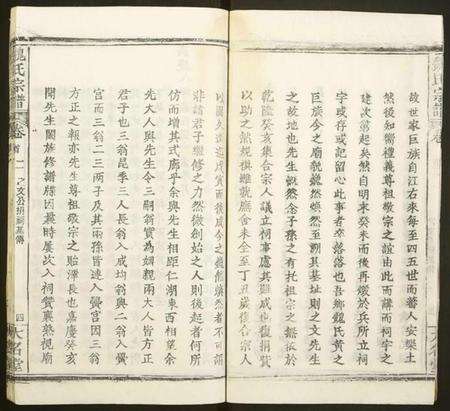 故世家巨族自江右來每至四五世而蕃人安樂土
然後知嚮禮義尊祖敬宗之誼由此而講而祠宇之
建次第起矣然自明末癸未而後再燬於兵所立祠
字或存或記留心此事者
巨族今之廟貌巍然煥然至朔其基址則之文先生
之故地也先生慨然念子孫之有托祖宗之
乾隆癸亥集合宗人議立祠事處其難成也復捐貲
以助之然規模雖就廳舍未全至丁丑歲復合宗人
非諸君子繼修之力然微創始之人則後起者何所
仿而增其式廓乎余與先生相距仁湖東西相望余
先大人與先生令三嗣翁實為姻親兩大人皆方正
君子也三翁昆季三人長翁入成均翁與二翁入黌
宮而三翁二三兩子及其兩孫皆連入黌宮因三翁
方正之報亦先生尊祖敬宗之貽澤長也嘉慶癸亥
開先生闔族修譜縣因農時屢次入祠贊襄熟視廟
氏宗譜
卷首
之文公捐祠基傳
四